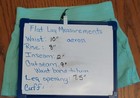 Flat Lay Measurements
Waist: 10" across
Rise: 8"
Inseam: 2"
Outseam: 9"
Waist band to hip
Leg opening: 7.5"
Cuff: